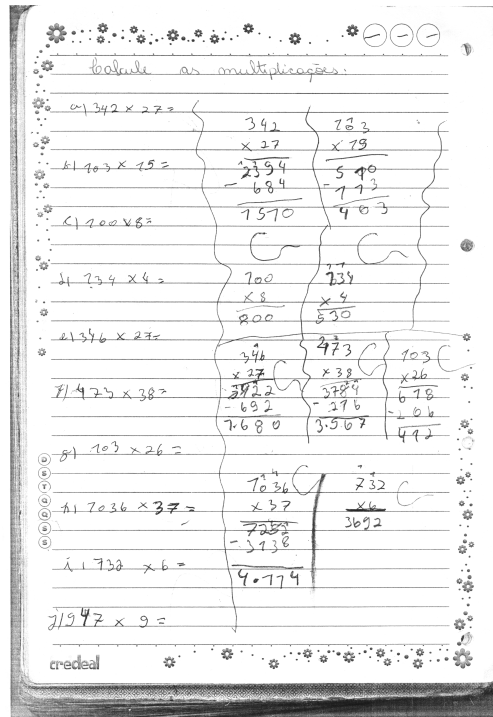 Calcule as multiplicações:
a) 342 x 27 =
b) 103 x 15 =
c) 100 x 8 =
d) 134 x 4 =
e) 346 x 27 =
f) 473 x 38 =
g) 103 x 26 =
h) 1036 x 37 =
i) 732 x 6 =
j) 947 x 9 =
342
x 27
2394
- 684
1510
103
x 15
510
- 113
403
100
x 8
800
134
x 4
530
346
x 27
2422
- 692
1.680
473
x 38
3784
- 216
3.567
103
x 26
618
- 206
412
1036
x 37
7252
- 3138
4.114
732
x 6
3692
D
S
T
Q
Q
S
S
credeal